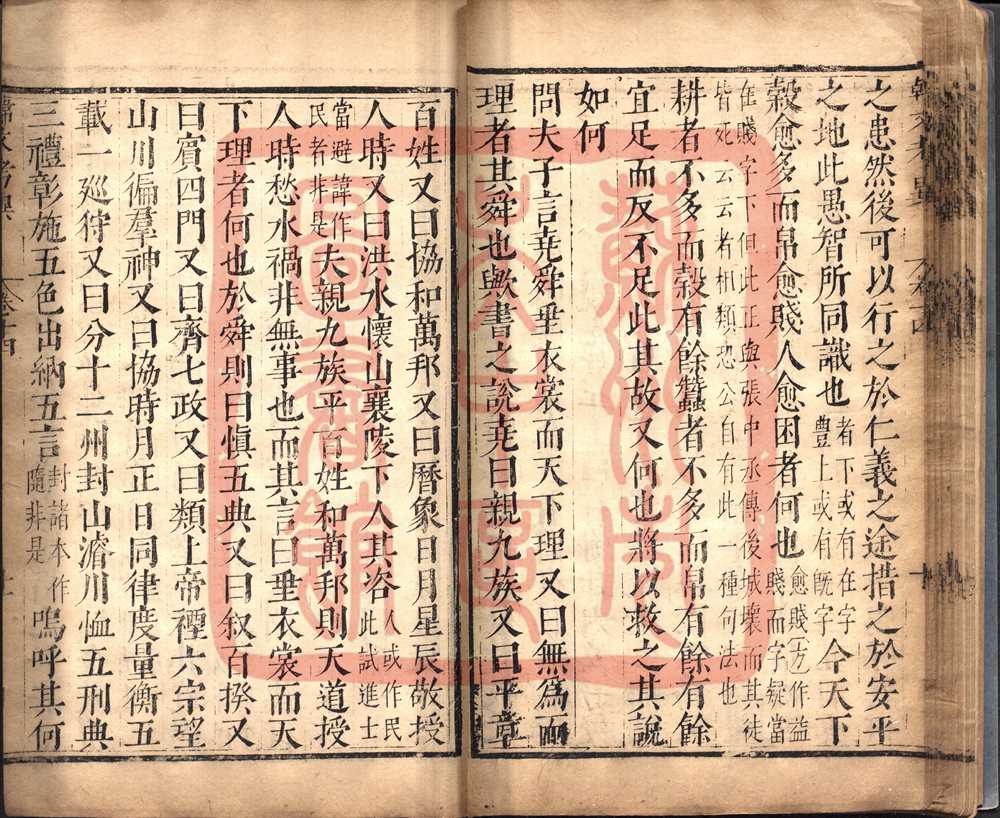 之患然後可以行之於仁義之途措之於安平
之地此愚智所同識也者下或有在字豐上或有既字今天下
穀愈多而帛愈賤人愈困者何也愈賤方作益賤而字疑當
在賤字下但此正與張中丞傳後城壞而其徒皆死云云者相類恐公自有此一種句法也
耕者不多而穀有餘蠶者不多而帛有餘有餘
宜足而反不足此其故又何也將以救之其說
如何
問夫子言堯舜垂衣裳而天下理又曰無為而
理者其舜也歟書之說堯曰親九族又曰平章
百姓又曰協和萬邦又曰曆象日月星辰敬授
人時又曰洪水懷山襄陵下人其咨人或作民此試進士
當避諱作民者非是夫親九族平百姓和萬邦則天道授
人時愁水禍非無事也而其言曰垂衣裳而天
下理者何也於舜則曰慎五典又曰叙百揆又
曰賓四門又曰齊七政又曰類上帝禋六宗望
山川徧羣神又曰協時月正日同律度量衡五
載一巡狩又曰分十二州封山濬川恤五刑典
三禮彰施五色出納五言封諸本作隨非是嗚呼其何
韓文考異 卷十四